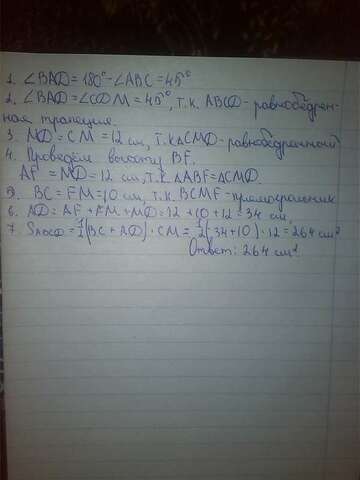 1. ∠BAD = 180° - ∠ABC = 45°
2. ∠BAD = ∠CDM = 45°, т.к. ABCD - равнобедрен-
ная трапеция.
3. MD = CM = 12 см, т.к ΔCMD - равнобедренный
4. Проведём высоту BF.
AF = MD = 12 см, т.к. ΔABF = ΔCMD.
5. BC = FM = 10 см, т.к. BCMF - прямоугольник
6. AD = AF + FM + MD = 12 + 10 + 12 = 34 см,
7. SABCD = 1/2 (BC + AD) · CM = 1/2 (34+10) · 12 = 264 см²
Ответ: 264 см²